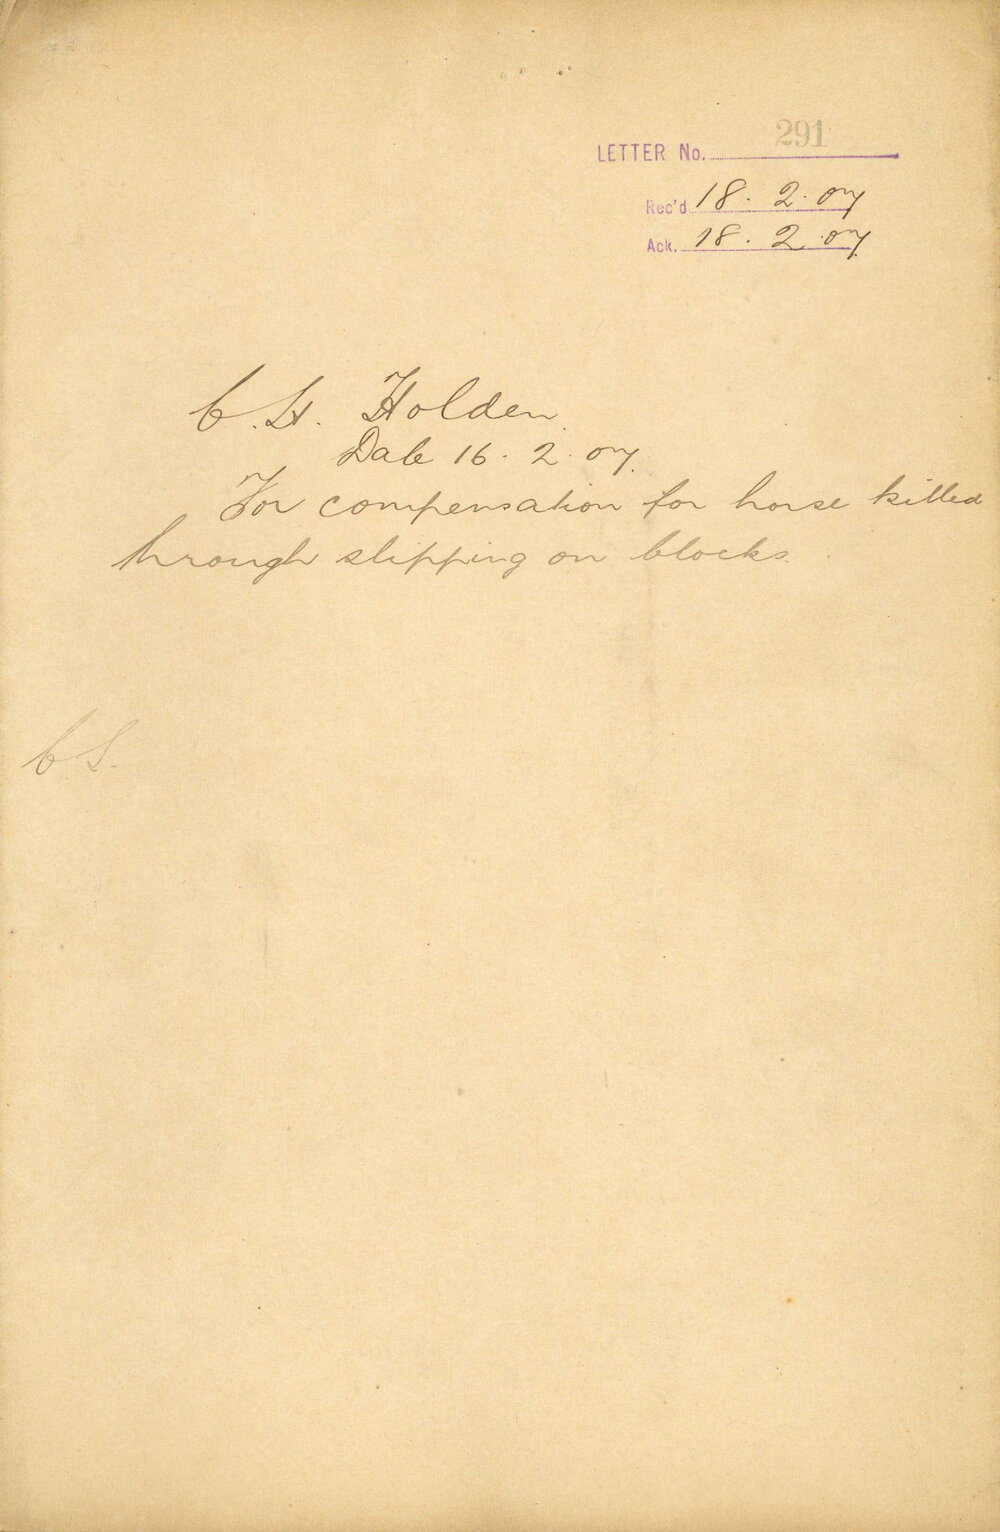 LETTER No. 291
Rec'd 18. 2. 07
Ack. 18. 2. 07
C. H. Holden
Date 16. 2. 07.
For compensation for horse killed
through slipping on blocks.
C.S.